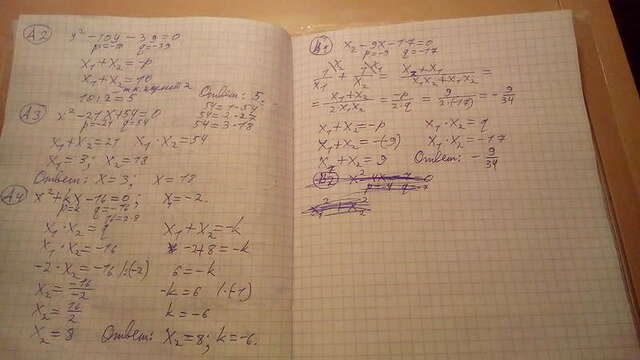 A2 y² - 10y - 39 = 0
p = -10 q = -39
x₁ + x₂ = -p
x₁ + x₂ = 10
10 : 2 = 5
Ответ: 5.
A3 x² - 21x + 54 = 0
p = -21 q = 54
54 = 1·54
54 = 2·27
54 = 3·18
x₁ + x₂ = 21 x₁ · x₂ = 54
x₁ = 3; x₂ = 18
Ответ: x = 3; x = 18
A4 x² + kx - 16 = 0; x₁ = -2.
p = k q = -16
16 = 2·8
x₁ · x₂ = q x₁ + x₂ = -k
x₁ · x₂ = -16 -2 + 8 = -k
-2 · x₂ = -16 |:(-2) 6 = -k
x₂ = -16/-2 -k = 6 |·(-1)
x₂ = 16/2 k = -6
x₂ = 8 Ответ: x₂ = 8; k = -6.
B1 x₂ - 9x - 17 = 0
p = -9 q = -17
1/x₁ + 1/x₂ = x₂ + x₁ / x₁x₂ + x₁x₂ =
= x₁ + x₂ / 2x₁x₂ = -p / 2·q = 9 / 2·(-17) = - 9/34
x₁ + x₂ = -p x₁ · x₂ = q
x₁ + x₂ = -(-9) x₁ · x₂ = -17
x₁ + x₂ = 9 Ответ: - 9/34
B2